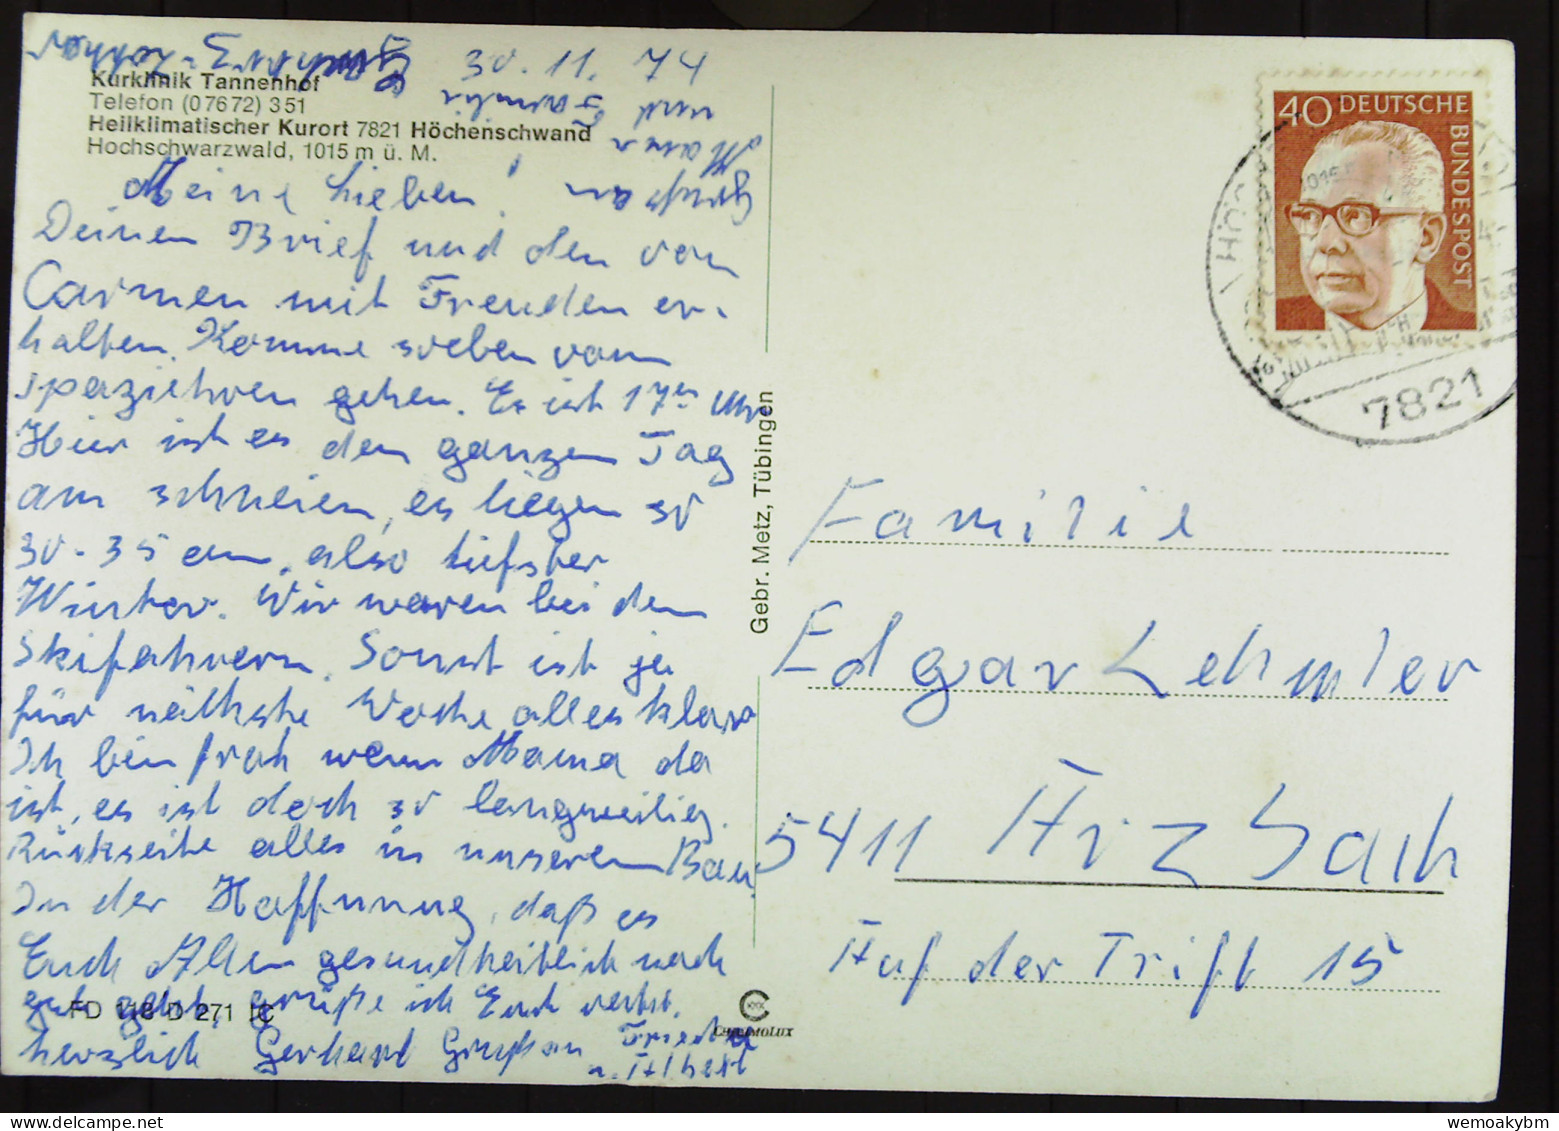 30.11.74
Kurklinik Tannenhof
Telefon (07672) 351
Heilklimatischer Kurort 7821 Höchenschwand
Hochschwarzwald, 1015 m ü. M.
Meine Lieben!
Deinen Brief und den von
Carmen mit Freuden er-
halten. Komme soeben vom
spaziehren gehen. Es ist 17er Uhr
Hier ist es den ganzen Tag
am schneien, es liegen so
30-35 cm, also tiefster
Winter. Wir waren bei dem
Skifahrern. Sonst ist ja
für nächste Woche alles klar
Ich bin froh wenn Mama da
ist, es ist doch so langweilig.
Rückseite alles in unserem Bau.
In der Hoffnung, daß es
Euch Allen gesundheitlich noch
gut geht, grüße ich Euch
herzlich Gerhard
Grüß an
u. Albert
Gruß an
Mama
und Familie
FD 118 D 271 IC
Gebr. Metz, Tübingen
CHROMOLUX
40 DEUTSCHE BUNDESPOST
7821
Familie
Edgar Lehmler
5411 Arzbach
Auf der Trift 15
wemoakybm